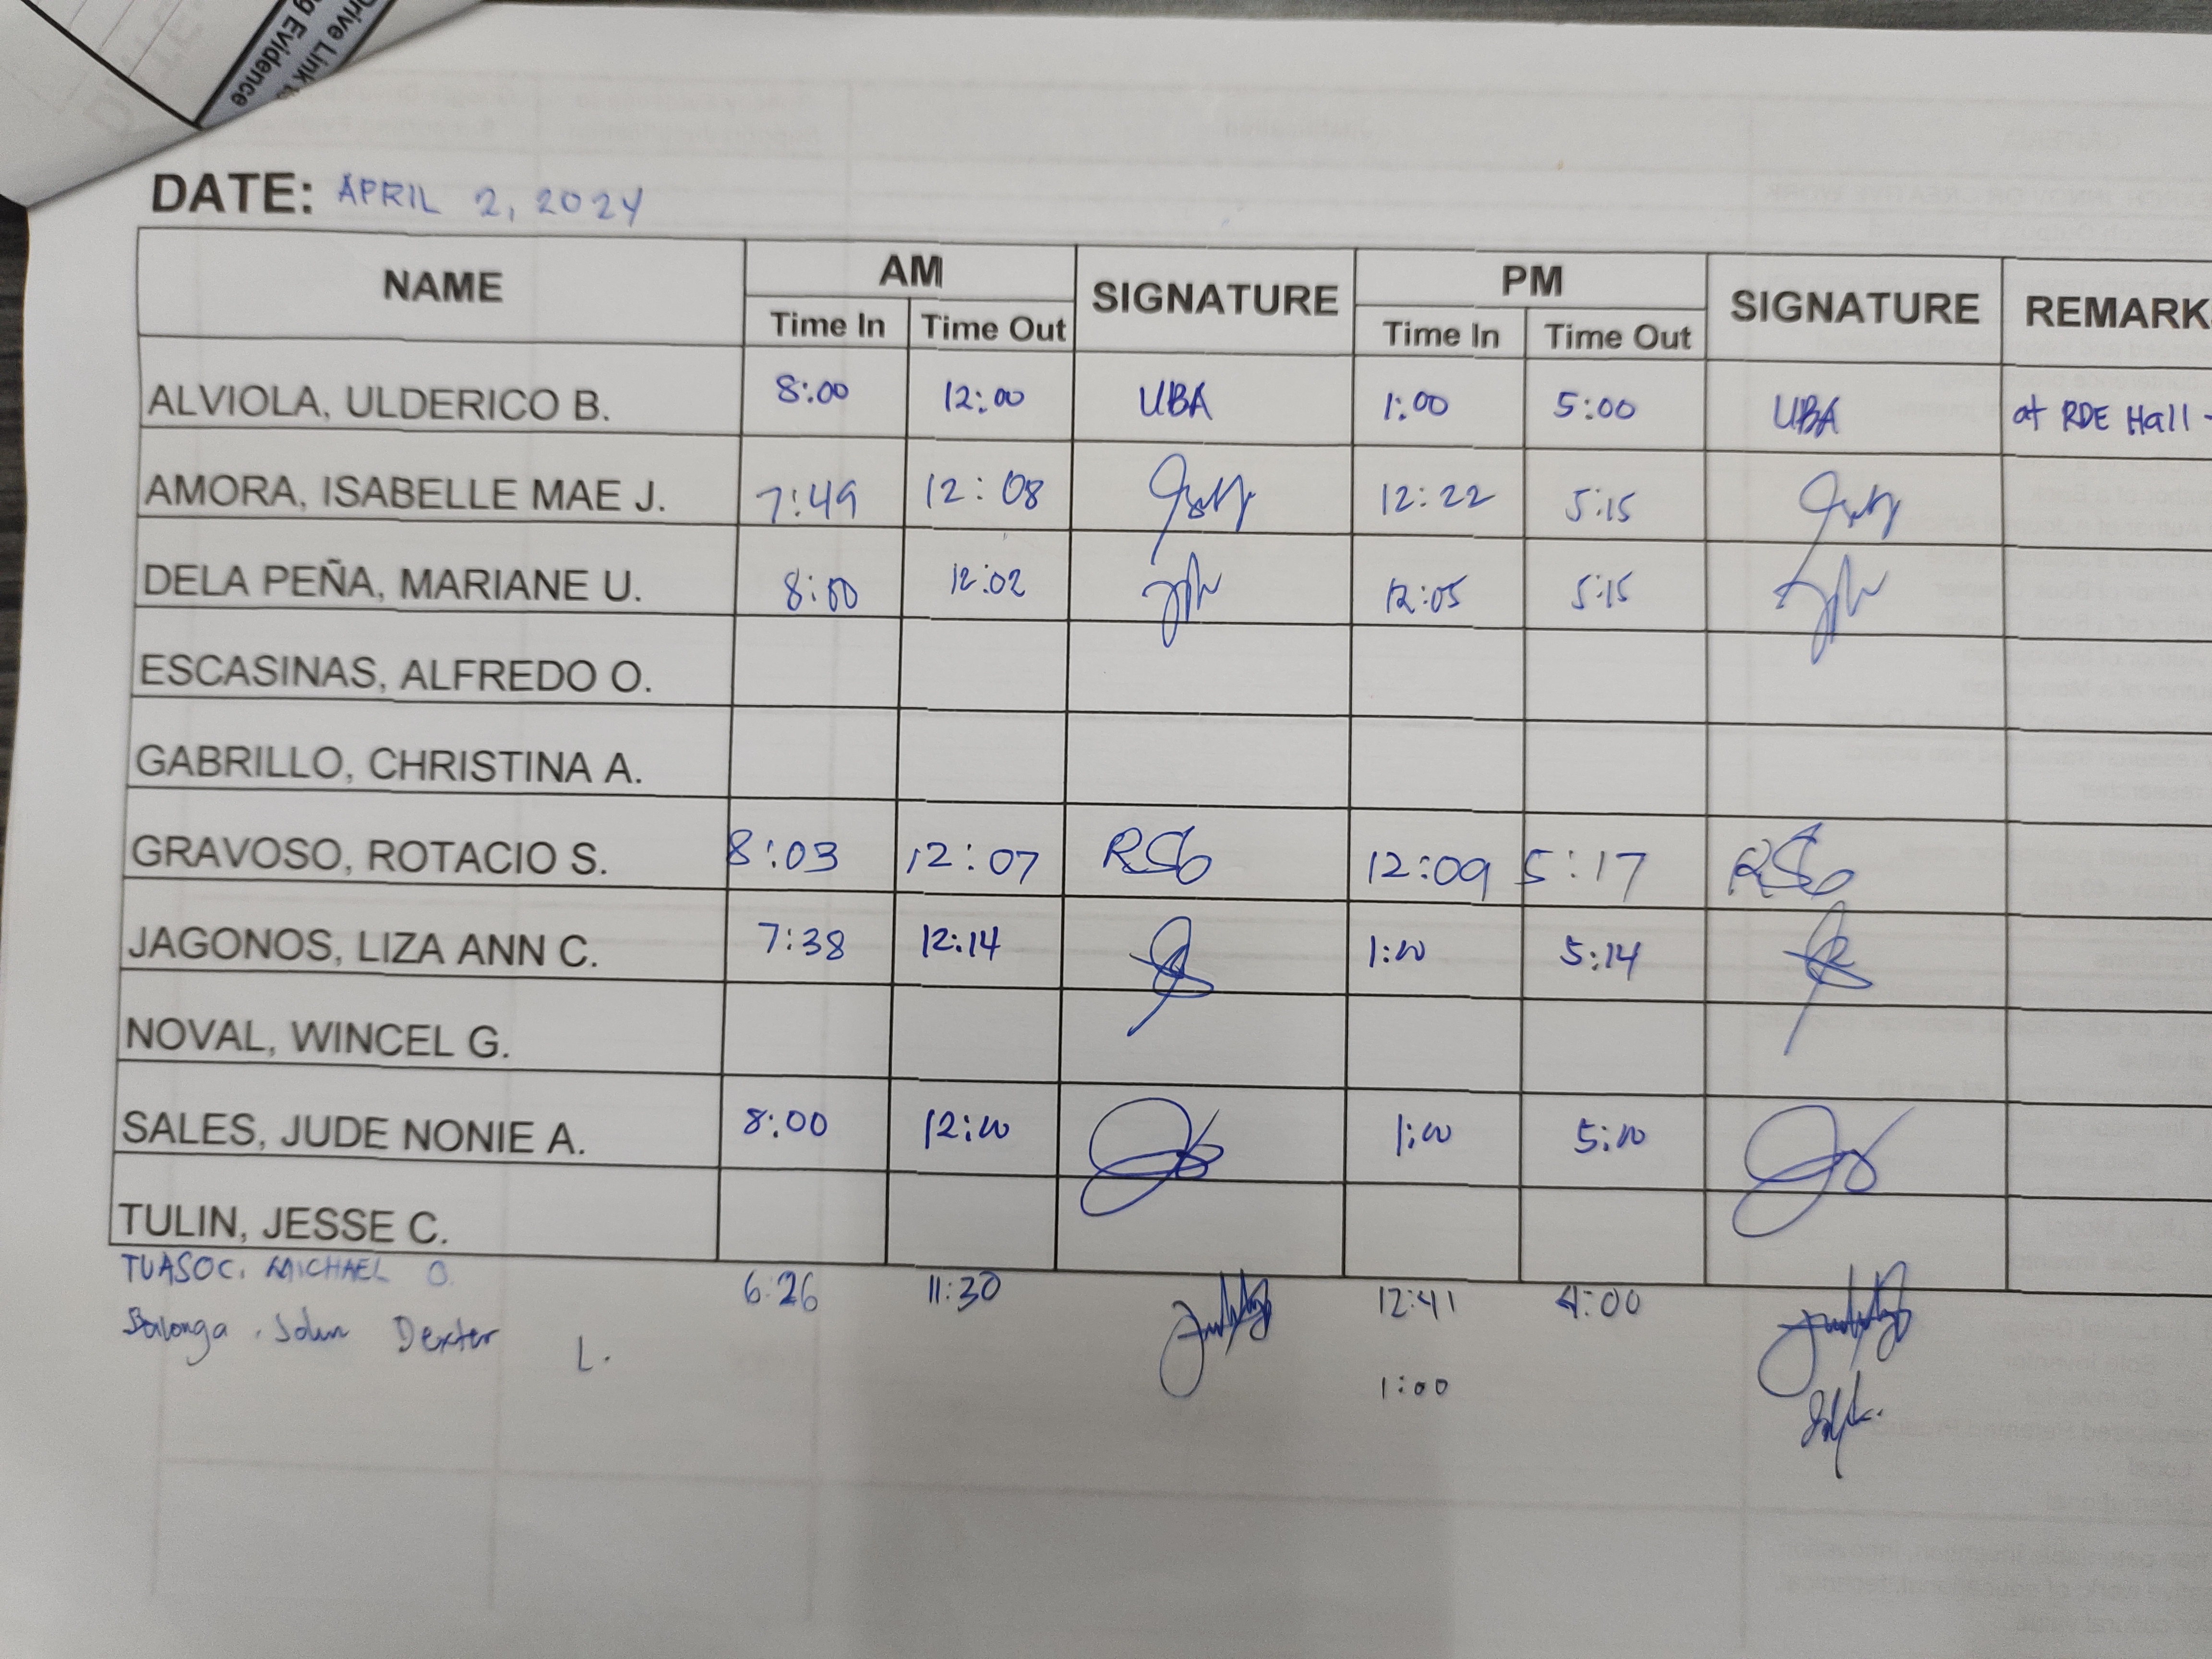 Drive Link to
g Evidence
DATE: APRIL 2, 2024
NAME AM SIGNATURE PM SIGNATURE REMARKS
Time In Time Out Time In Time Out
ALVIOLA, ULDERICO B. 8:00 12:00 UBA 1:00 5:00 UBA at RDE Hall -
AMORA, ISABELLE MAE J. 7:49 12:08 12:22 5:15
DELA PEÑA, MARIANE U. 8:00 12:02 12:05 5:15
ESCASINAS, ALFREDO O.
GABRILLO, CHRISTINA A.
GRAVOSO, ROTACIO S. 8:03 12:07 RSG 12:09 5:17 RSG
JAGONOS, LIZA ANN C. 7:38 12:14 1:00 5:14
NOVAL, WINCEL G.
SALES, JUDE NONIE A. 8:00 12:00 1:00 5:00
TULIN, JESSE C.
TUASOC, MICHAEL O. 6:26 11:30 12:41 4:00
Balonga, John Dexter L. 1:00